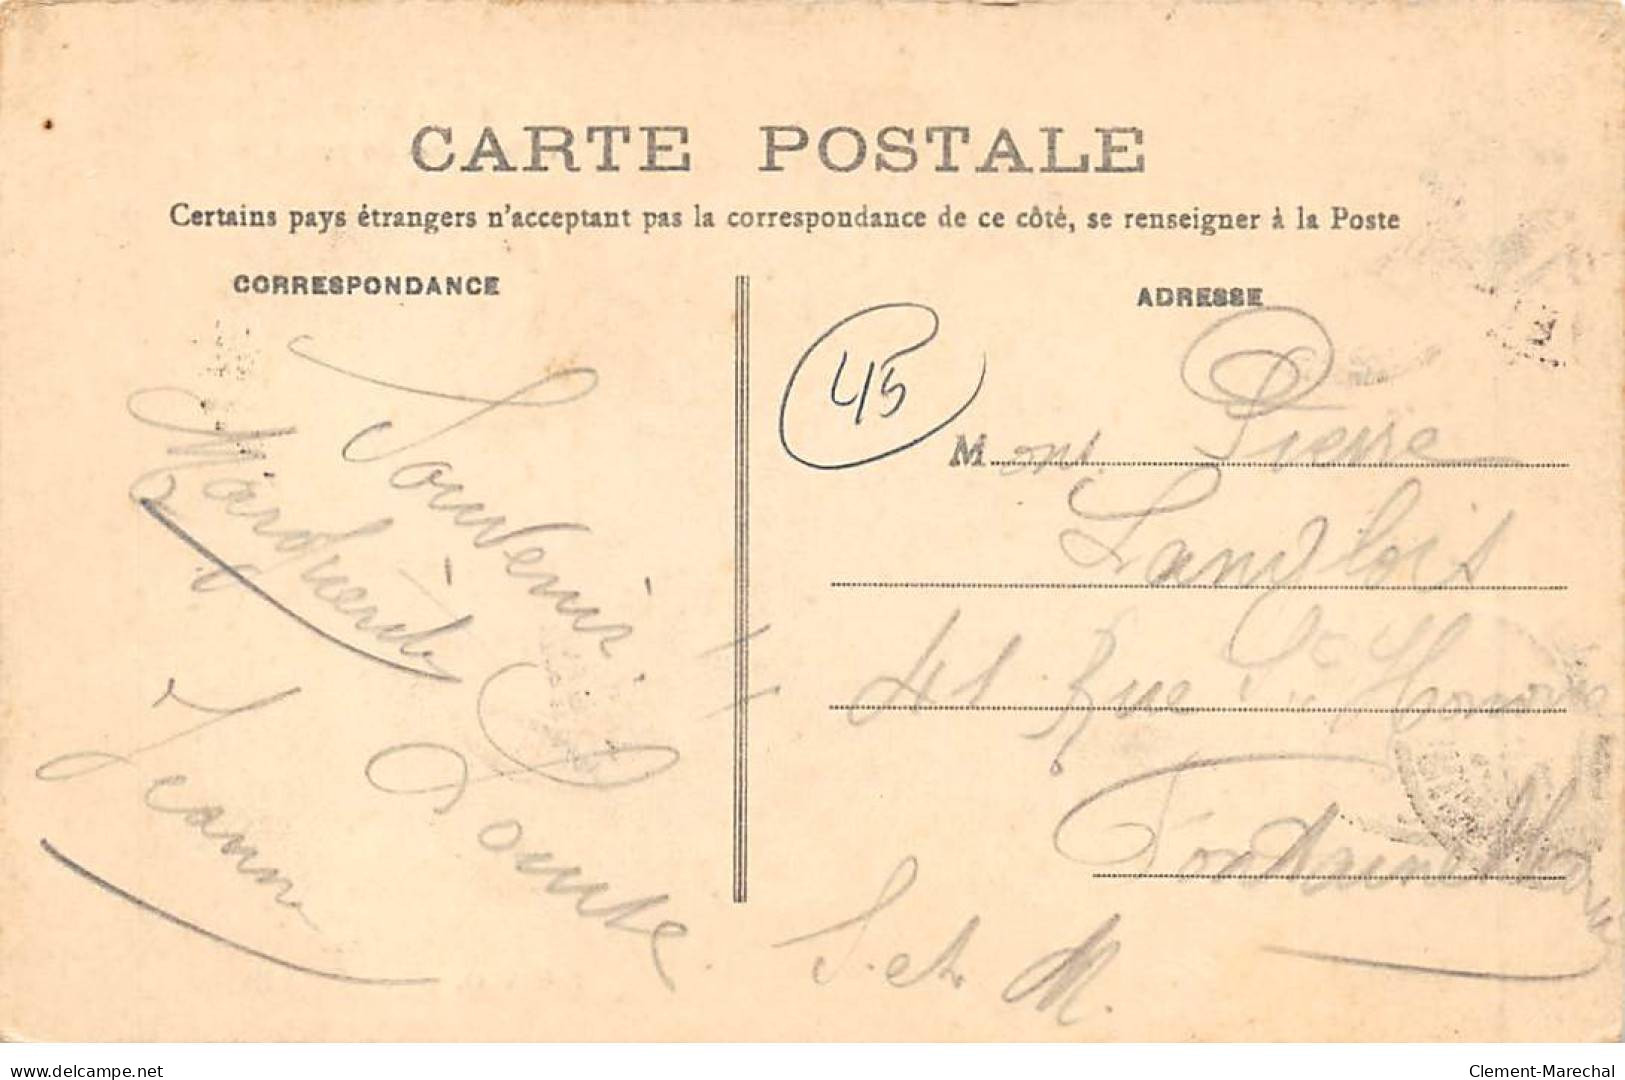 CARTE POSTALE
Certains pays étrangers n'acceptant pas la correspondance de ce côté, se renseigner à la Poste
CORRESPONDANCE
Souvenir
Marguerite
Jeanne
Louise
ADRESSE
45
Mons. Pierre
Langlois
41 Rue St Honoré
Fontainebleau
S. et M.
www.delcampe.net
Clement-Marechal